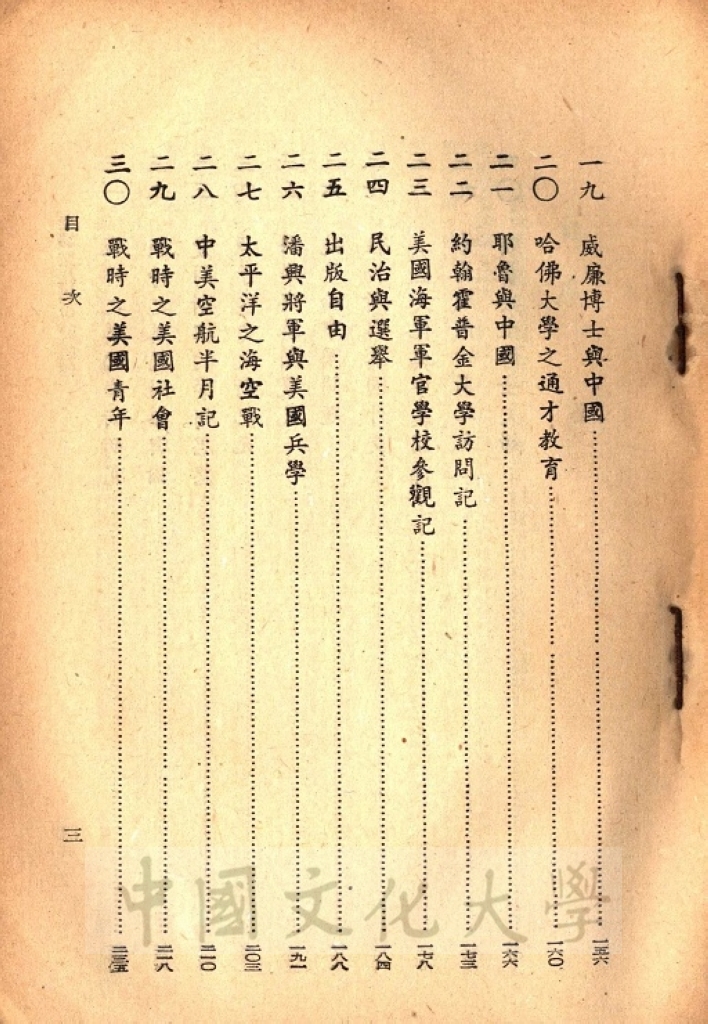 一九 威廉博士與中國……一五六
二〇 哈佛大學之通才教育……一六〇
二一 耶魯與中國……一六六
二二 約翰霍普金大學訪問記……一七三
二三 美國海軍軍官學校參觀記……一七八
二四 民治與選舉……一八四
二五 出版自由……一八八
二六 潘興將軍與美國兵學……一九一
二七 太平洋之海空戰……二〇三
二八 中美空航半月記……二一〇
二九 戰時之美國社會……二一八
三〇 戰時之美國青年……二三五
目次 三
中國文化大學